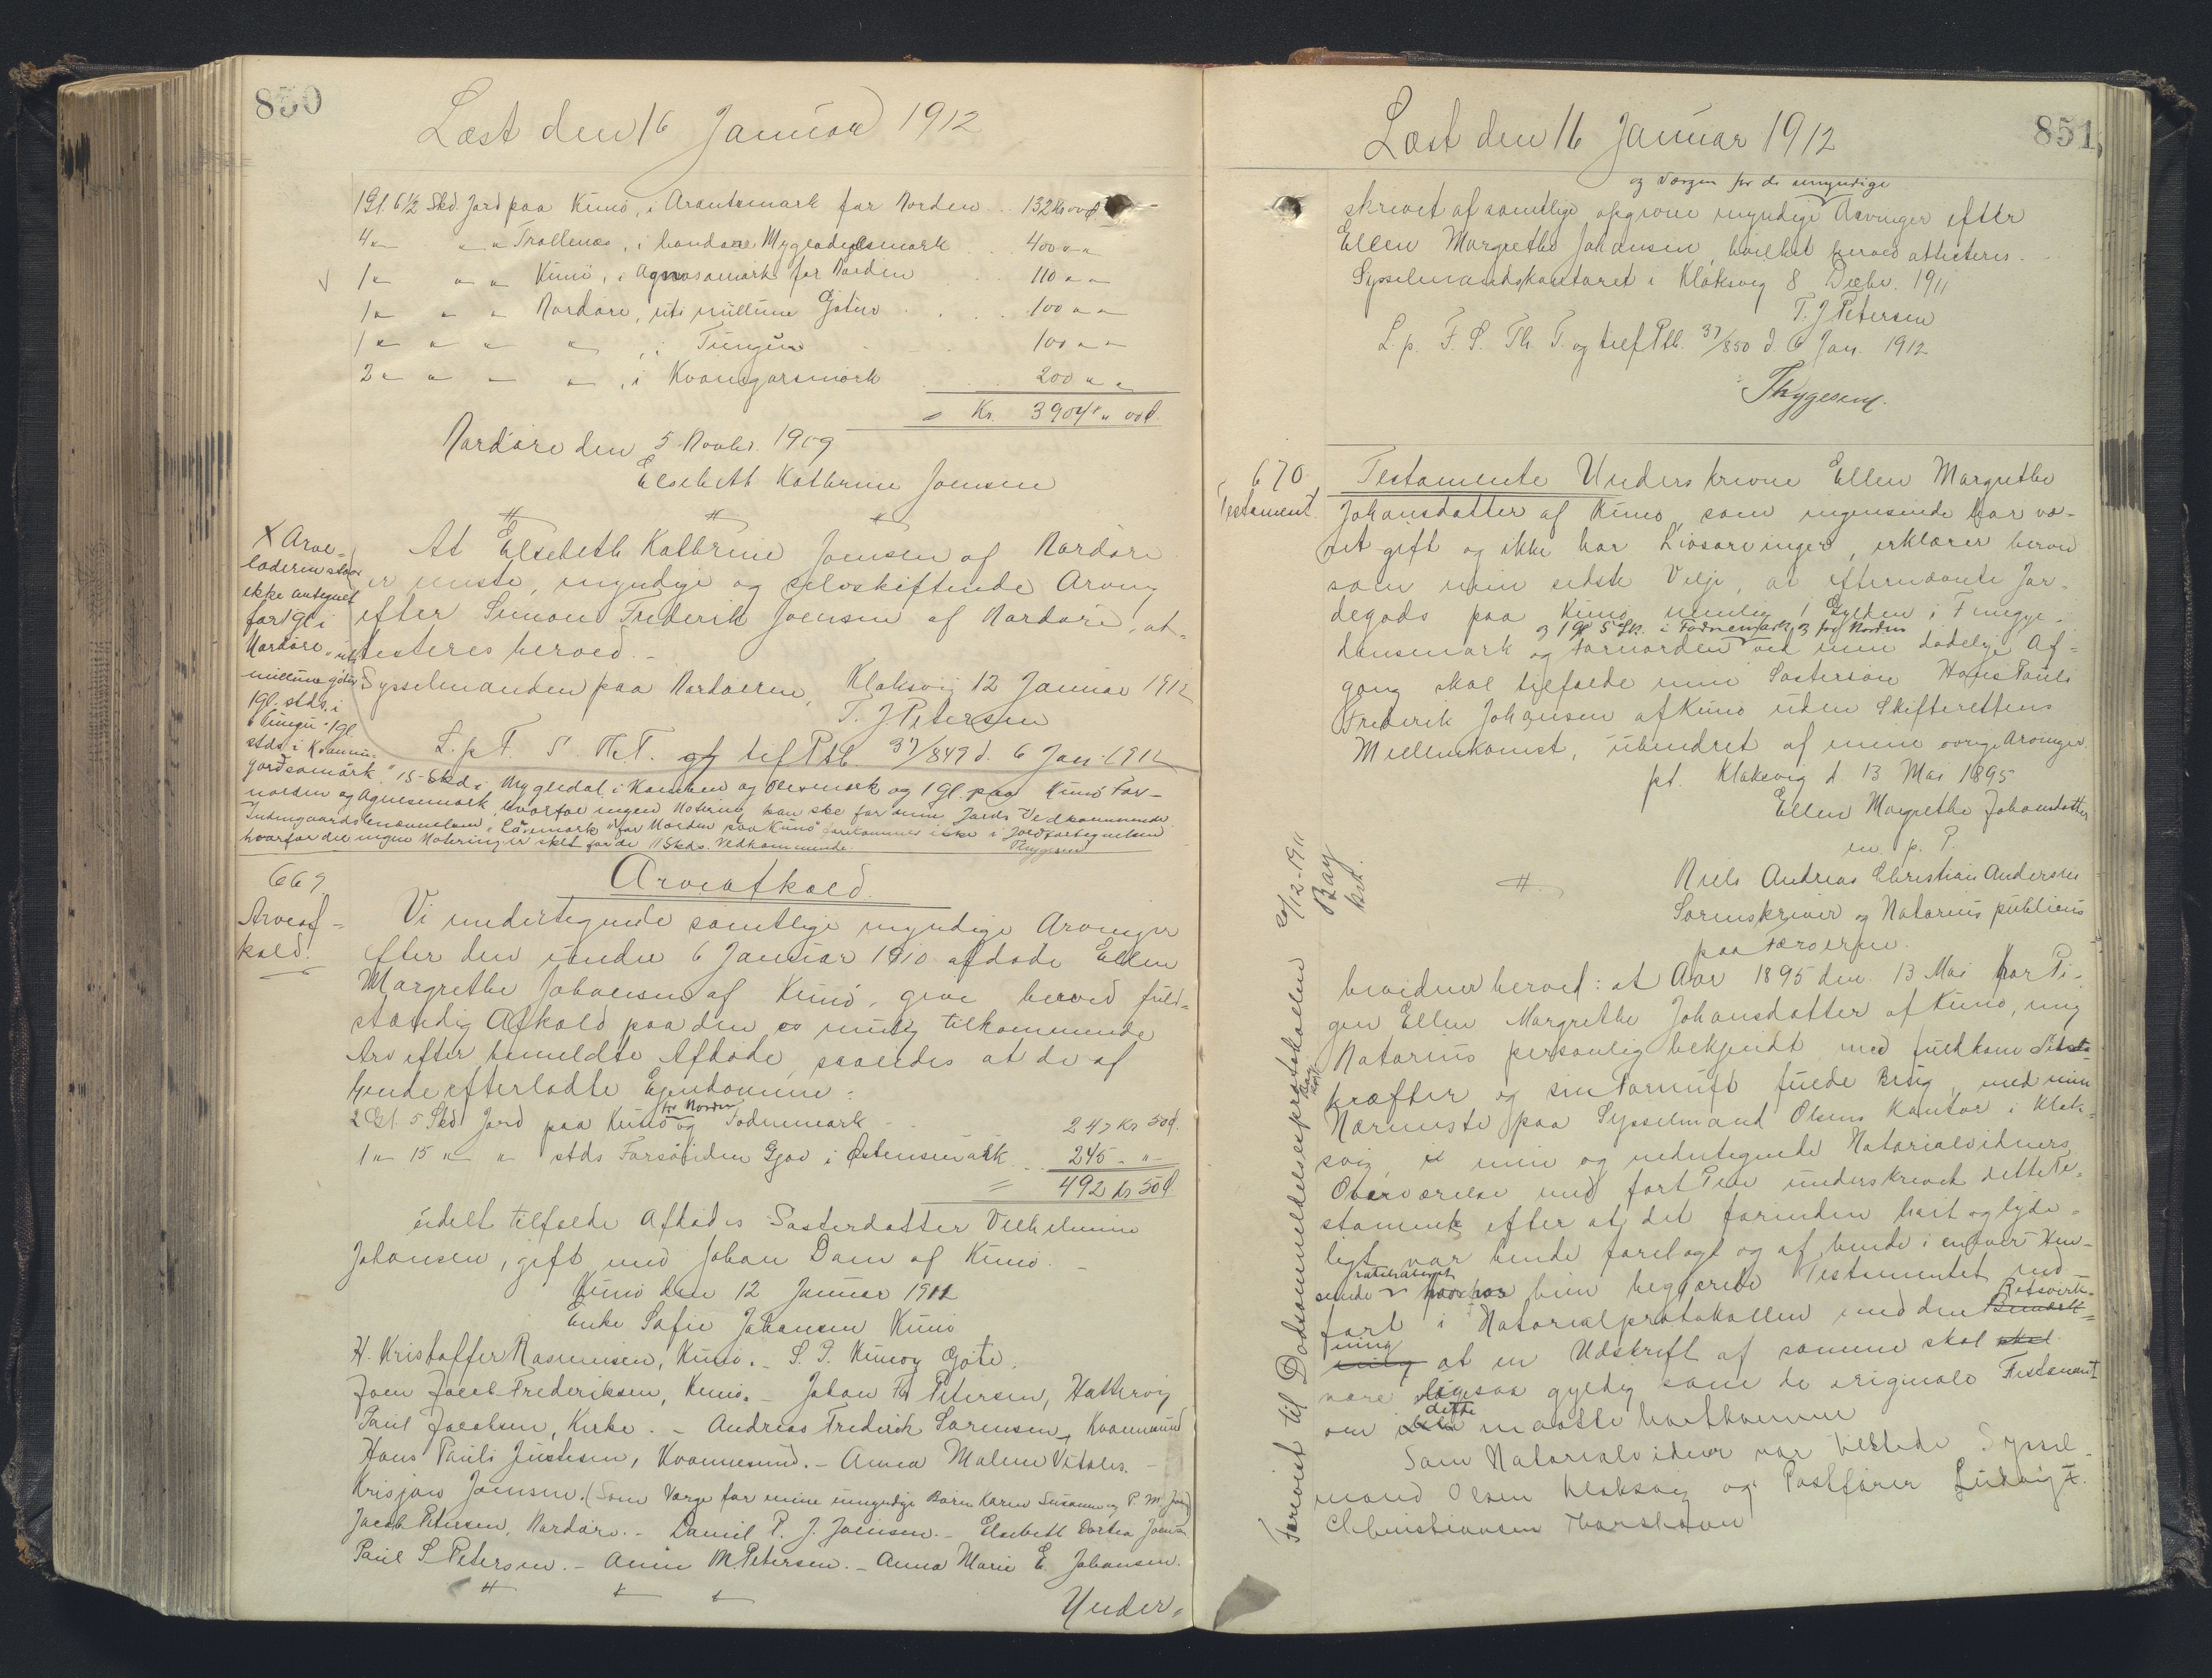 850
Læst den 16 Januar 1912
1 Gl. 6½ Skd. Jord paa Kunø, i Arantsmark før Norden .. 132 Kr 00 Ø
4 " " " Trøllenæs, i Mygledalsmark .. 400 " "
1 " " " Kunø, i Agnesamark før Norden .. 110 " "
1 " " " Nordøre, uti millum Gøtur .. 100 " "
1 " " " " , i Tungu .. 100 " "
2 " " " " , i Kvanngarsmørk .. 200 " "
= Kr. 3904 " 00 Ø
Nordøre den 5 Novbr. 1909
Elsebeth Kathrine Joensen
At Elsebeth Kathrine Joensen af Nordøre
er eneste, myndige og selvskiftende Arving
efter Simon Frederik Joensen af Nordøre, at-
testeres herved. -
Sysselmanden paa Norderøerne, Klaksvig 12 Januar 1912
T. J Petersen
L. p. F. S. Th. T. og tilf Ptb. 37/849 d. 6 Jan. 1912
X Arve-
laderen staar
ikke antegnet
for 1 Gl i
Nordøre "uti
millum gøtur"
1 gl. stds. i
"Tungu" 1 gl.
stds. i Kvannu-
gardsamørk. 15 Skd i Mygledal i og og 1 gl. paa Kunø For-
norden og Agnesmark, hvorfor ingen Notering kan ske for disse Jords Vedkommende.
Indmgaardsbenævnelsen "Låvemørk" før Norden paa Kunø forekommer ikke i Jordfortegnelsen
hvorfor der ingen Notering er sket for de 11 Skds. Vedkommende. Thygesen
669
Arveaf-
kald.
Arveafkald.
Vi undertegnede samtlige myndige Arvinger
efter den under 6 Januar 1910 afdøde Ellen
Margrethe Johansen af Kunø, give herved fuld-
stændig Afkald paa den os muligt tilkommende
Arv efter bemeldte Afdøde, saaledes at de af
hende efterladte Ejendomme:
2 Gl 5 Skd Jord paa Kunø før Norden og Todnemark .. 247 Kr 50 Ø.
1 " 15 " " stds Forsønden Gjov i Østensmark .. 245 " "
= 492 Kr 50 Ø
udelt tilfalde Afdødes Søsterdatter Vilhelmine
Johansen, gift med Johan Dam af Kunø. -
Kunø den 12 Januar 1911
Enke Sofie Johansen Kunø
H. Kristoffer Rasmussen, Kunø. - S. P. Kunoy Gøte.
Joen Jacob Frederiksen, Kunø. - Johan Fr Petersen, Hattervig
Paul Jacobsen, Kirke. - Andreas Frederik Sørensen, Kvannesund
Hans Pauli Justesen, Kvannesund. - Anna Malene Vitalis. -
Krisjan Joensen. (Som Værge for mine umyndige Børn Karen Susanne og P. M. Joensen)
Jacob Petersen, Nordøre. - Daniel P. J. Joensen. - Elsebeth Dortea Joensen
Paul S. Petersen. - Anne M. Petersen. - Anna Marie E. Johansen.
Under-
851
Læst den 16 Januar 1912
og Værgen for de umyndige
skrevet af samtlige opgivne myndige Arvinger efter
Ellen Margrethe Johansen, hvilket herved attesteres. -
Sysselmandskontoret i Klaksvig 8 Decbr. 1911
T. J Petersen
L. p. F. S. Th. T. og tilf Ptb. 37/850 d. 6 Jan. 1912
Thygesen.
670
Testament.
Testamente Underskrevne Ellen Margrethe
Johansdatter af Kunø, som ingensinde har væ-
ret gift og ikke har Livsarvinger, erklærer herved
som min sidste Vilje, at efternævnte Jor-
degods paa Kunø nemlig 1 Gylden i
og 1 gl 5 Sk. i Fodnemark og før Norden
og Fornorden ved min dødelige Af-
gang skal tilfalde min Søstersøn Hans Pauli
Frederik Johansen af Kunø uden Skifterettens
Mellemkomst, uhindret af mine øvrige Arvinger.
pt. Klaksvig d. 13 Mai 1895
Ellen Margrethe Johansdatter
m. p. P.
Niels Andreas Christian Andersen
Sorenskriver og Notarius publicus
paa Færøerne.
bevidner herved: at Aar 1895 den 13 Mai har Pi-
gen Ellen Margrethe Johansdatter af Kunø, mig
Notarius personlig bekjendt med fuldkomne Sinds-
kræfter og sin Fornufts fulde Brug, med min
Nærmeste paa Sysselmand Olsens Kontor i Klak-
svig, i min og undertegnede Notarialvidners
Overværelse med ført Pen underskrevet dette Te-
stamente efter at det forinden højt og lyde-
ligt var hende forelagt og af hende i enhver Hen-
seende ratihaberet har hun begjæret Testamentet ind-
ført i Notarialprotokollen med den Retsvirk-
ning at en Udskrift af samme skal
være ligesaa gyldig som de originale Testament
om dette maatte bortkomme
Som Notarialvidner var tilstede Syssel-
mand Olsen Klaksvig og Postfører Ludvig
Christiansen Thorshavn
Forevist til Dødsanmeldelsesprotokollen 20/12-1911
Bay
kst.